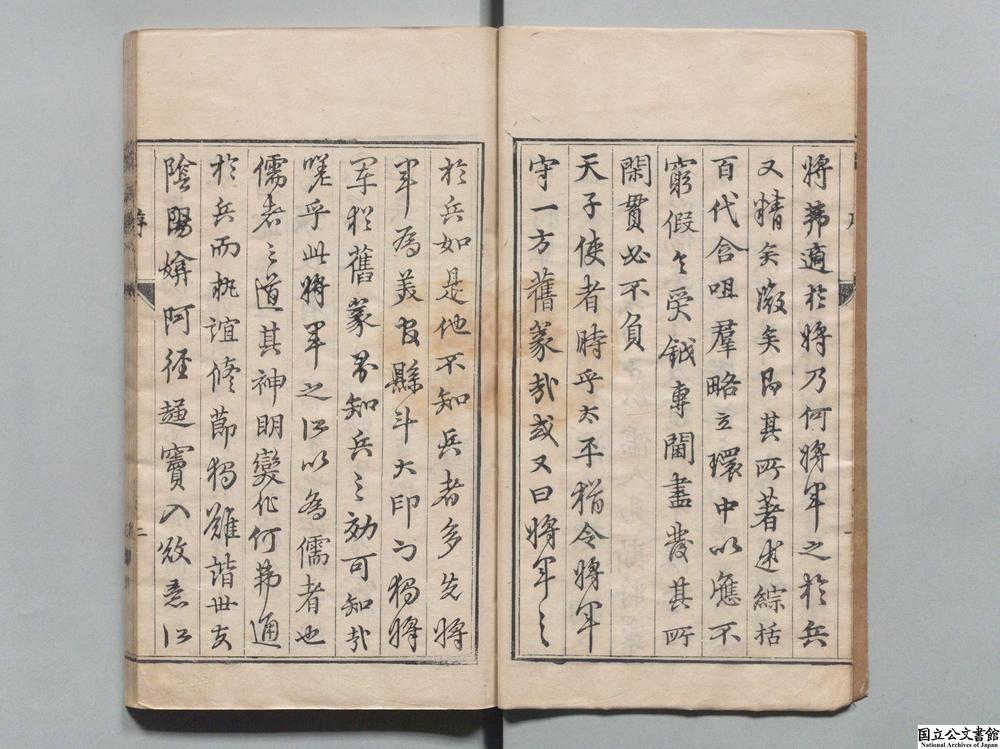 將弗適於將乃何將軍之於兵
又精矣微矣即其所著述綜括
百代含咀羣略立環中以應不
窮假令受鉞專閫盡發其所
閑貫必不負
天子使者時乎太平猶令將軍
守一方舊篆哉或又曰將軍之
於兵如是他不知兵者多先將
軍為美官縣斗大印而獨將
軍猶舊篆界知兵之効可知哉
嗟乎此將軍之所以為儒者也
儒者之道其神明變化何弗通
於兵而執誼脩節獨難諧世友
陰陽媕阿徑趨竇入敓悉以
序
二
国立公文書館
National Archives of Japan